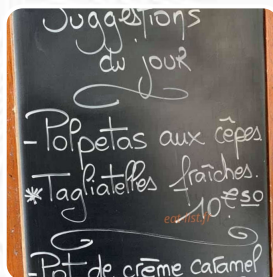 Suggestions
du jour
- Polpetas aux cèpes
* Tagliatelles fraîches.
10€50
- Pot de crème caramel